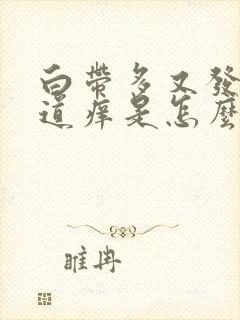 白帶多又發
道痒是怎麼
睢冉